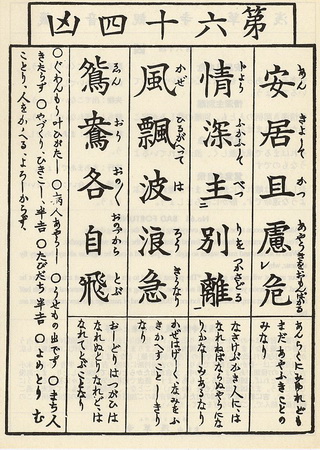 第六十四凶
安居且慮危
あんきよしてかつあやうきをおもんばかる
あんらくにゐれども
まだあやふきことの
みなり
情深主別離
ふかふして
べつりをつかさどる
なさけぶかき人には
なれねばならぬやうにな
りかなしみあるなり
風飄波浪急
かぜひるがへつてはろうきうなり
かぜはげしくなみをふ
きかへすことしきり
なり
鴛鴦各自飛
ゑんおうおのおのおのづからとぶ
おしどりはつがひは
なれぬとりなれどは
なれてとぶことなり
○ぐわんもう叶ひがたし ○病人あやうし ○うせもの出でず ○まち人
きたらず ○やづくりひきこし半吉 ○たびだち半吉 ○よめとりむ
ことり人をかゝへるよろしからず